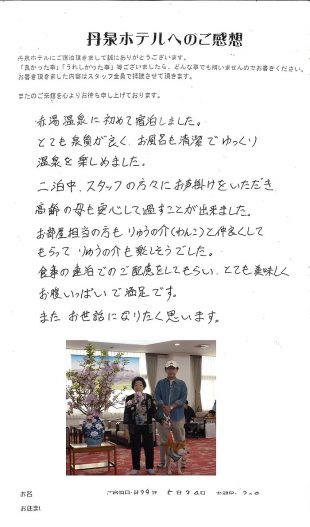 丹泉ホテルへのご感想
丹泉ホテルにご宿泊頂きまして誠にありがとうございます。
「良かった事」「うれしかった事」等ございましたら、どんな事でも構いませんのでお書きください。
お書き頂きました内容はスタッフ全員で拝読させて頂きます。
またのご来館を心よりお待ち申し上げております。
赤湯温泉に初めて宿泊しました。
とても泉質が良く、お風呂も清潔でゆっくり
温泉を楽しめました。
二泊中、スタッフの方々にお声掛けをいただき
高齢の母も安心して過すことが出来ました。
お部屋担当の方も りゅうの介(わんこ)と仲良くして
もらって りゅうの介も楽しそうでした。
食事の連泊でのご配慮をしてもらい、とても美味しく
お腹いっぱいで満足です。
また お世話になりたく思います。
お名
お住まい